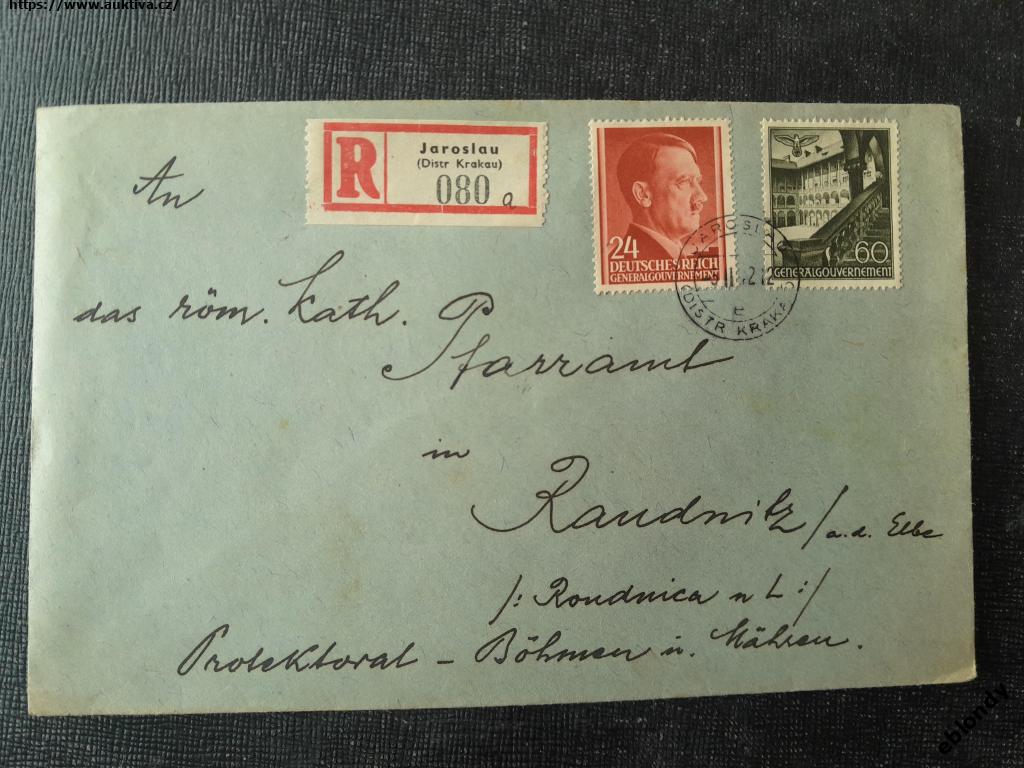 https://www.auktiva.cz/
R
Jaroslau
(Distr Krakau)
080 a
24
DEUTSCHES REICH
GENERALGOUVERNEMENT
60
GENERALGOUVERNEMENT
(DISTR KRAKAU)
e
An
das röm. kath.
Pfarramt
in
Raudnitz /a.d. Elbe
/: Roudnica n L :/
Protektorat - Böhmen u. Mähren.
eblondy